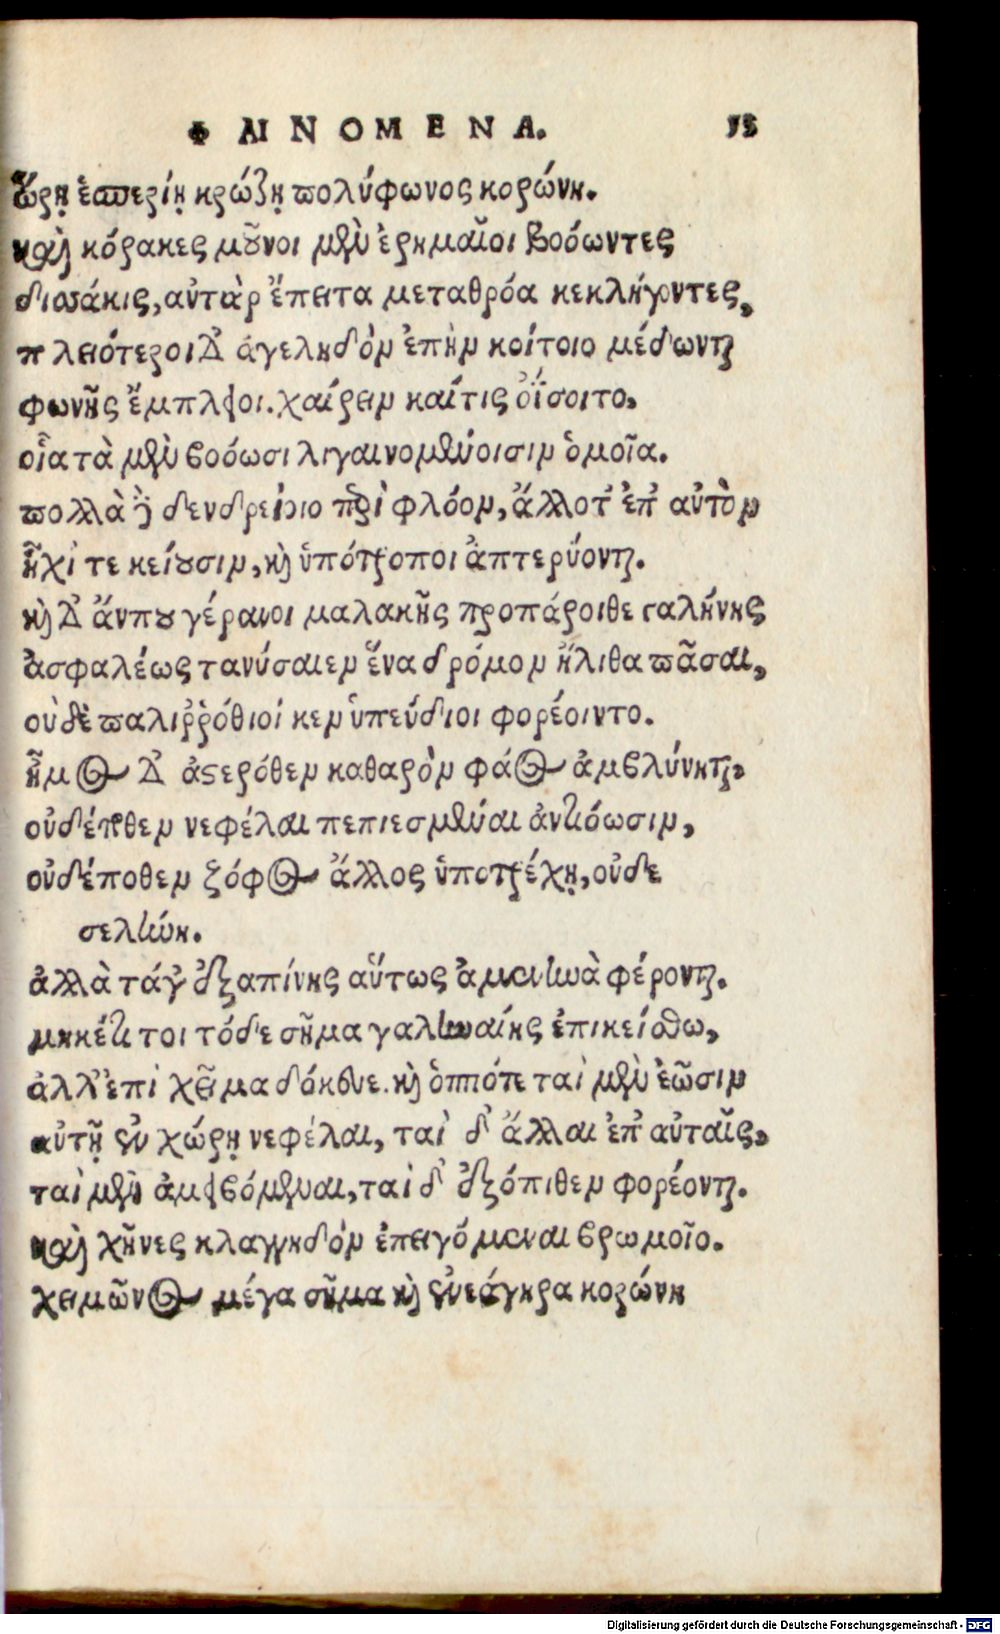 ΦΑΙΝΟΜΕΝΑ. 35
ὥρῃ ἑσπερίῃ κρώζῃ πολύφωνος κορώνη.
καὶ κόρακες μοῦνοι μὲν ἐρημαῖοι βοόωντες
δισσάκις, αὐτὰρ ἔπειτα μεταθρόα κεκλήγοντες,
πλειότεροι δ' ἀγεληδὸν ἐπὴν κοίτοιο μέδωνται
φωνῆς ἔμπλειοι. χαίρειν καί τις ὀΐσοιτο,
οἷα τὰ μὲν βοόωσι λιγαινομένοισιν ὁμοῖα.
πολλὰ δὲ δενδρείοιο περὶ φλόον, ἄλλοτ' ἐπ' αὐτὸν
ἧχί τε κείουσιν, καὶ ὑπότροποι ἀπτερύονται.
καὶ δ' ἄν που γέρανοι μαλακῆς προπάροιθε γαλήνης
ἀσφαλέως τανύσαιεν ἕνα δρόμον ἤλιθα πᾶσαι,
οὐδὲ παλιῤῥόθιοί κεν ὑπεύδιοι φορέοιντο.
ἦμος δ' ἀστερόθεν καθαρὸν φάος ἀμβλύνηται,
οὐδέ ποθεν νεφέλαι πεπιεσμέναι ἀντιόωσιν,
οὐδέ ποθεν ζόφος ἄλλος ὑποτρέχῃ, οὐδε
σελήνη.
ἀλλὰ τάγ' ἐξαπίνης αὕτως ἀμενηνὰ φέρονται.
μηκέτι τοι τόδε σῆμα γαληναίης ἐπικείσθω,
ἀλλ' ἐπὶ χεῖμα δόκευε. καὶ ὁππότε ταὶ μὲν ἔωσιν
αὐτῇ ἐν χώρῃ νεφέλαι, ταὶ δ' ἄλλαι ἐπ' αὐταῖς,
ταὶ μὲν ἀμειβόμεναι, ταὶ δ' ἐξόπιθεν φορέονται.
καὶ χῆνες κλαγγηδὸν ἐπειγόμεναι βρωμοῖο.
χειμῶνος μέγα σῆμα καὶ ἐννεάγηρα κορώνη
Digitalisierung gefördert durch die Deutsche Forschungsgemeinschaft - DFG